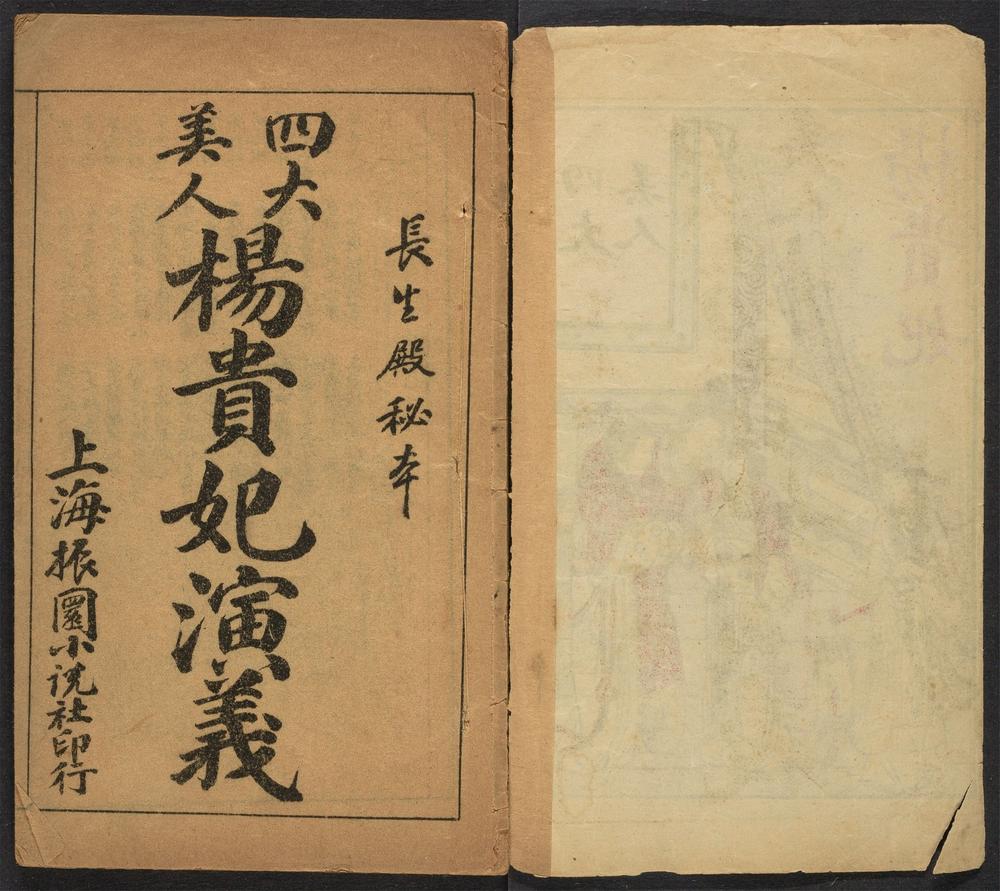 長生殿秘本
四大
美人
楊貴妃演義
上海振圜小説社印行